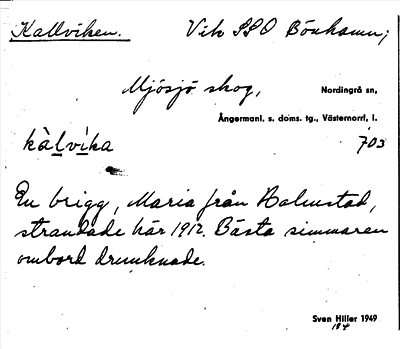 Kallviken. Vik SSO Bönhamn,
Mjösjö skog, Nordingrå sn,
Ångermanl. s. doms. tg., Västernorrl, l.
kàlvíka 703
En brigg, Maria från Halmstad,
strandade här 1912. Bästa simmaren
ombord drunknade.
Sven Hiller 1949
184